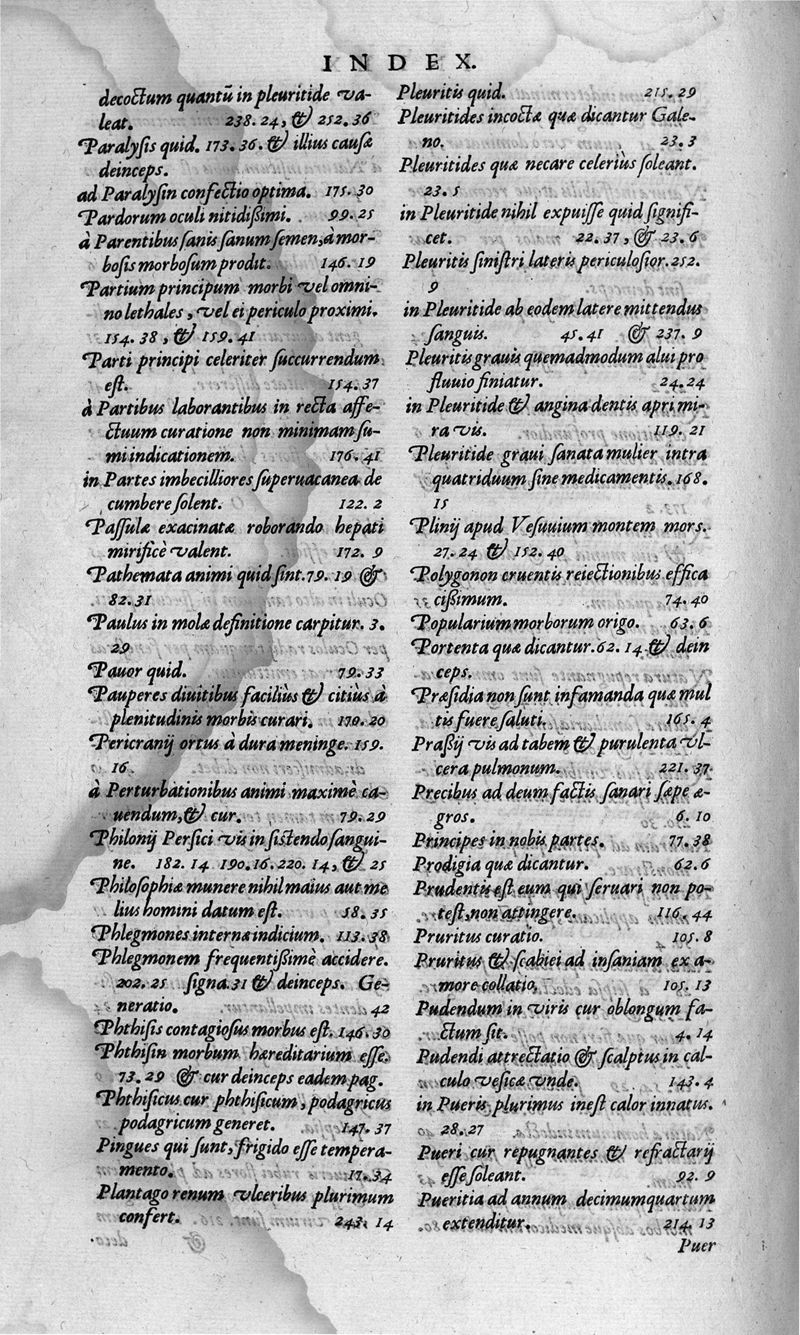 INDEX.
decoctum quantũ in pleuritide va-
leat. 238. 24, & 252. 36
Paralysis quid. 173. 36. & illius causæ
deinceps.
ad Paralysin confectio optima. 175. 30
Pardorum oculi nitidißimi. 99. 25
à Parentibus sanis sanum semen, à mor-
bosis morbosum prodit. 146. 19
Partium principum morbi vel omni-
no lethales, vel ei periculo proximi.
154. 38, & 159. 41
Parti principi celeriter succurrendum
est. 154. 37
à Partibus laborantibus in recta affe-
ctuum curatione non minimam su-
mi indicationem. 176. 41
in Partes imbecilliores superuacanea de
cumbere solent. 122. 2
Passulæ exacinatæ roborando hepati
mirificè valent. 172. 9
Pathemata animi quid sint. 79. 19 &
82. 31
Paulus in molæ definitione carpitur. 3.
29
Pauor quid. 79. 33
Pauperes diuitibus faciliùs & citiùs à
plenitudinis morbis curari. 170. 20
Pericranij ortus à dura meninge. 159.
16.
à Perturbationibus animi maximè ca-
uendum, & cur. 79. 29
Philonij Persici vis in sistendo sangui-
ne. 182. 14 190. 16. 220. 14, & 25
Philosophiæ munere nihil maius aut me
lius homini datum est. 58. 35
Phlegmones internæ indicium. 113. 38
Phlegmonem frequentißimè accidere.
202. 25 signa. 31 & deinceps. Ge-
neratio. 42
Phthisis contagiosus morbus est. 146. 30
Phthisin morbum hæreditarium esse.
73. 29 & cur deinceps eadem pag.
Phthisicus cur phthisicum, podagricus
podagricum generet. 147. 37
Pingues qui sunt, frigido esse tempera-
mento. 17. 34
Plantago renum vlceribus plurimum
confert. 243. 14
Pleuritis quid. 215. 29
Pleuritides incoctæ quæ dicantur Gale-
no. 23. 3
Pleuritides quæ necare celeriùs soleant.
23. 5
in Pleuritide nihil expuisse quid signifi-
cet. 22. 37, & 23. 6
Pleuritis sinistri lateris periculosior. 252.
9
in Pleuritide ab eodem latere mittendus
sanguis. 45. 41 & 237. 9
Pleuritis grauis quemadmodum alui pro
fluuio finiatur. 24. 24
in Pleuritide & angina dentis apri mi-
ra vis. 119. 21
Pleuritide graui sanata mulier intra
quatriduum sine medicamentis. 168.
15
Plinij apud Vesuuium montem mors.
27. 24 & 152. 40
Polygonon cruentis reiectionibus effica
cißimum. 74. 40
Popularium morborum origo. 63. 6
Portenta quæ dicantur. 62. 14 & dein
ceps.
Præsidia non sunt infamanda quæ mul
tis fuere saluti. 165. 4
Praßij vis ad tabem & purulenta vl-
cera pulmonum. 221. 37
Precibus ad deum factis sanari sæpe æ-
gros. 6. 10
Principes in nobis partes. 77. 38
Prodigia quæ dicantur. 62. 6
Prudentis est eum qui seruari non po-
test, non attingere. 116. 44
Pruritus curatio. 105. 8
Pruritus & scabiei ad insaniam ex a-
more collatio. 105. 13
Pudendum in viris cur oblongum fa-
ctum sit. 4. 14
Pudendi attrectatio & scalptus in cal-
culo vesicæ vnde. 143. 4
in Pueris plurimus inest calor innatus.
28. 27
Pueri cur repugnantes & refractarij
esse soleant. 92. 9
Pueritia ad annum decimumquartum
extenditur. 214. 13
Puer